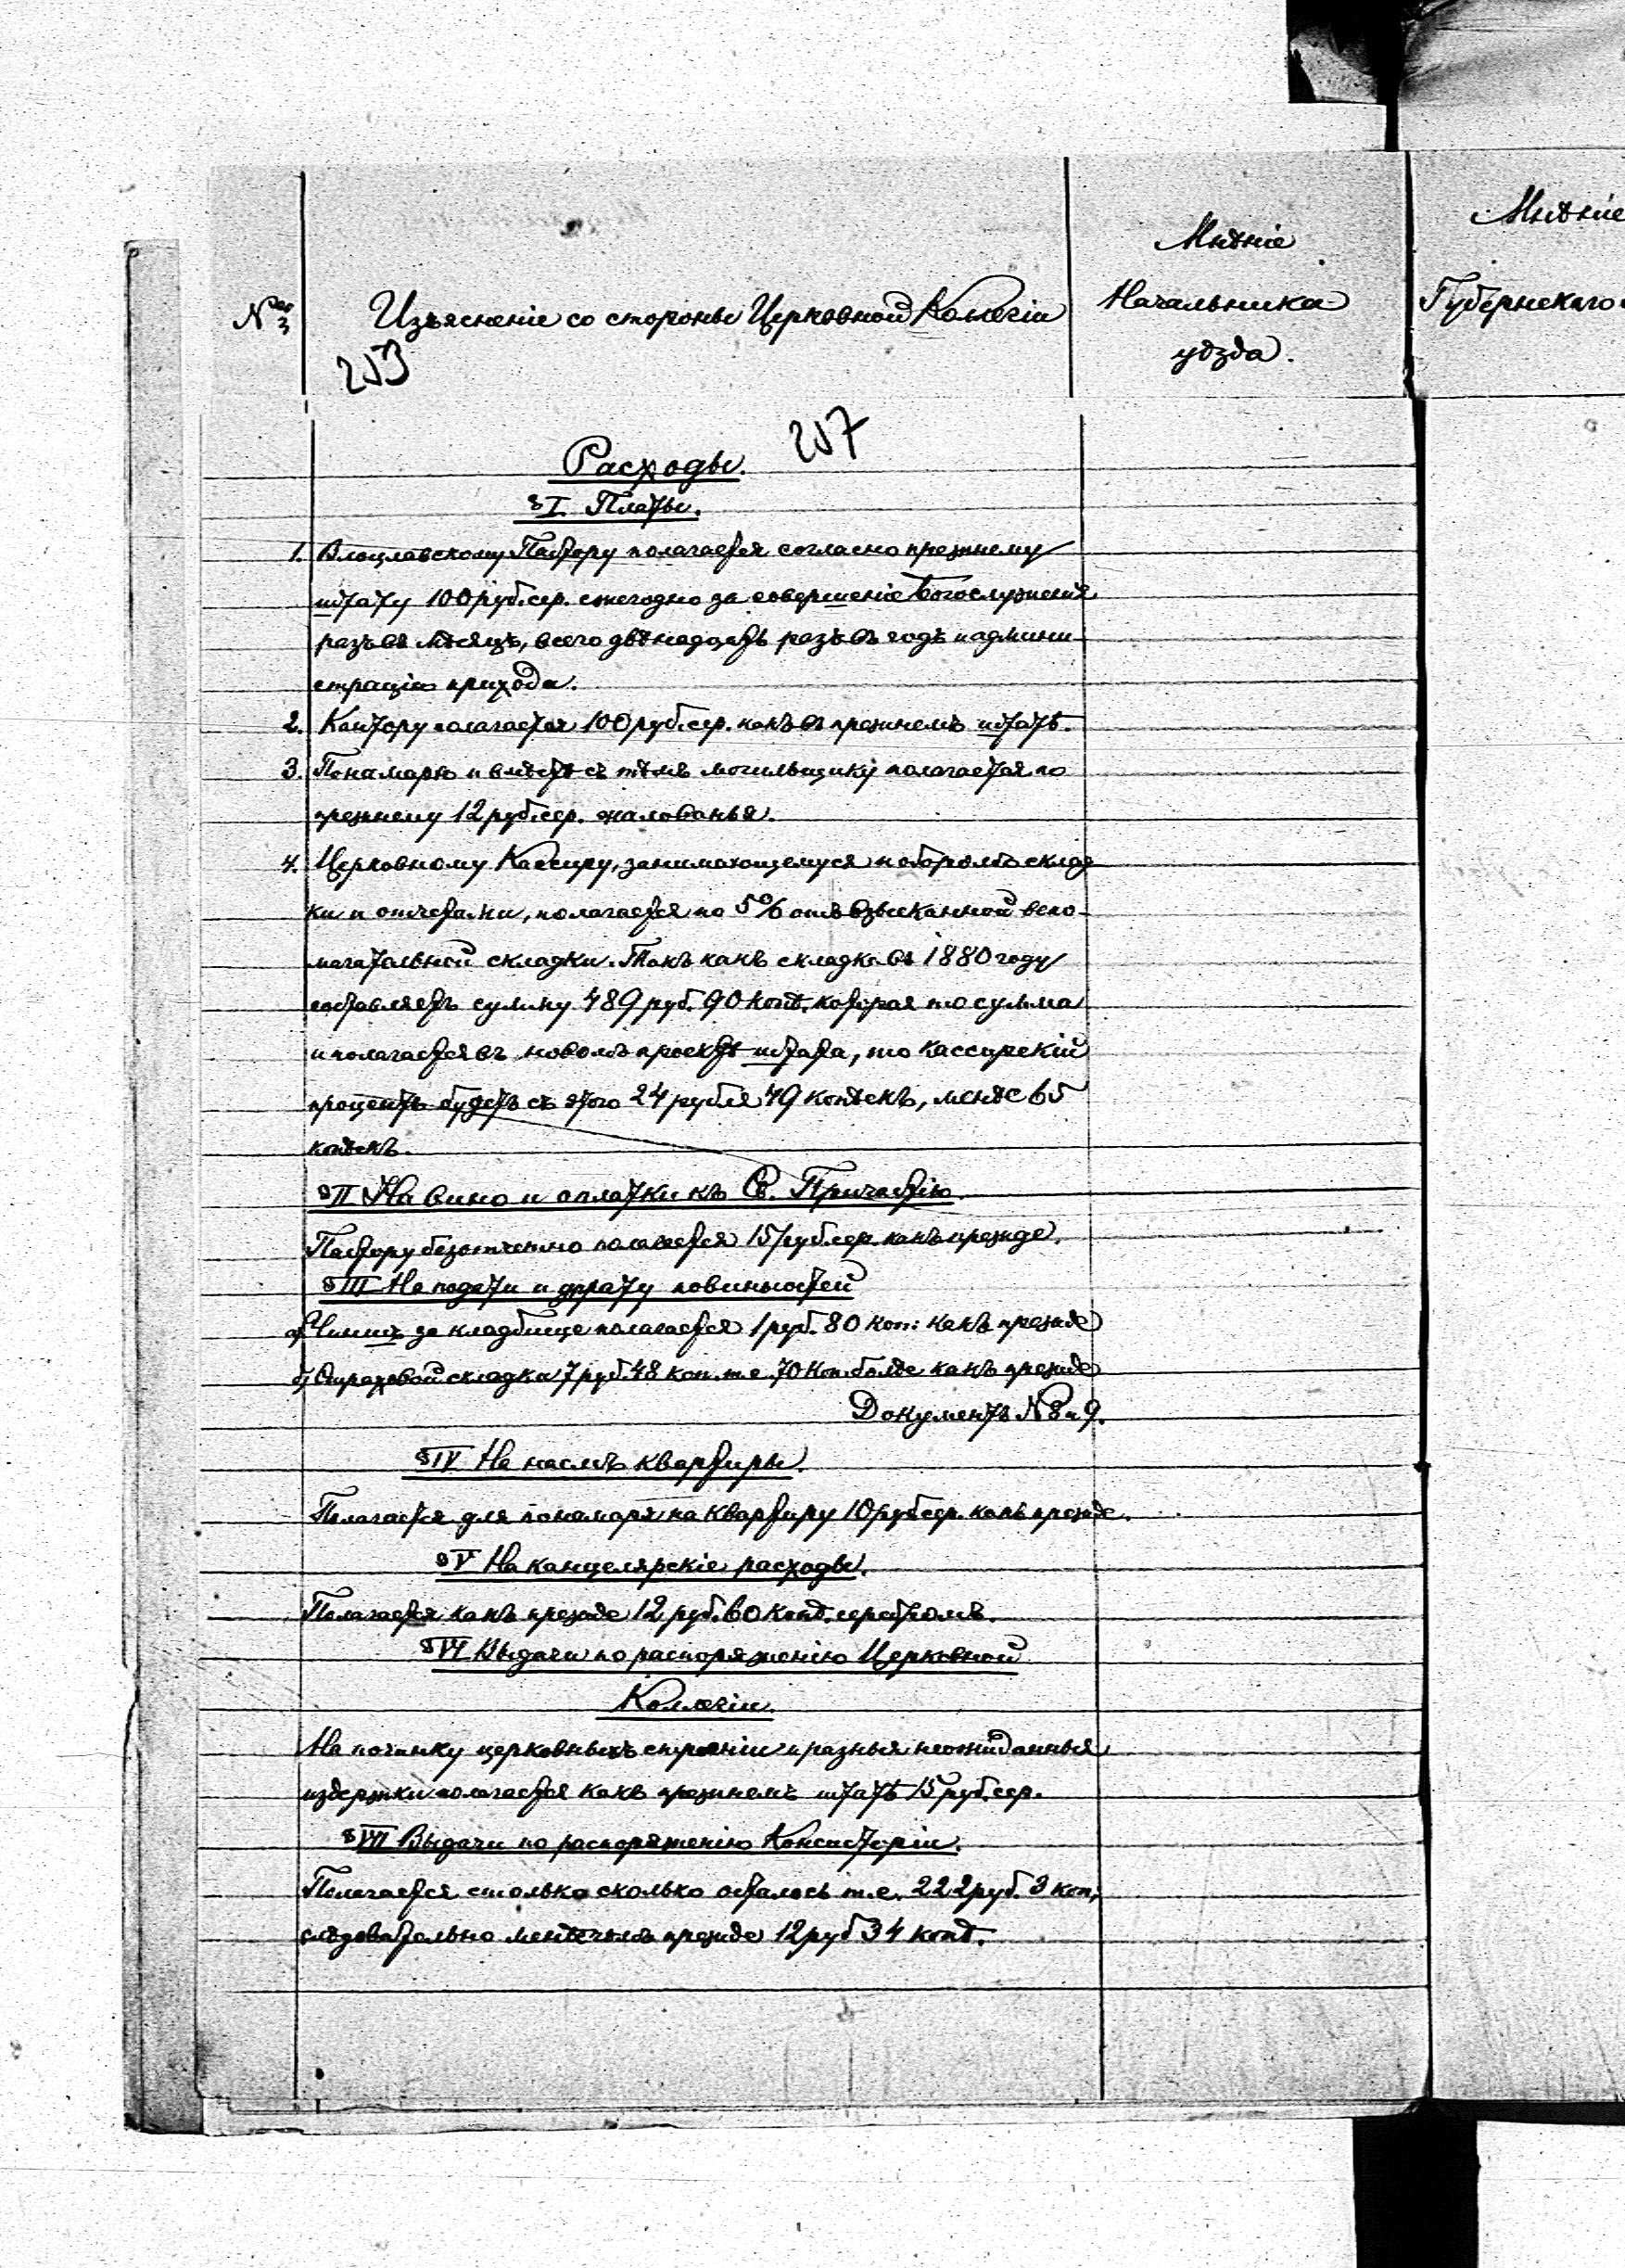 Мнѣніе
Мнѣніе
№
Изъясненіе со стороны Церковной Коллегіи
Начальника
Губернскаго
уѣзда.
203
207
Расходы.
§ I Платы.
1. Влоцлавскому Пастору полагается согласно прежнему
штату 100 руб. сер. ежегодно за совершеніе Богослуженія
разъ въ мѣсяцъ, всего двѣнадцать разъ въ годъ и админи
страцію прихода.
2. Кантору полагается 100 руб. сер. какъ въ прежнемъ штатѣ.
3. Понамарю и вмѣстѣ съ тѣмъ могильщику полагается по
прежнему 12 руб. сер. жалованья.
4. Церковному Кассиру, занимающемуся наборомъ склад
ки и отчетами, полагается по 5% отъ взысканной вспо-
магательной складки. Такъ какъ складка въ 1880 году
составляетъ сумму 489 руб. 90 коп., которая то сумма
и полагается въ новомъ проектѣ штата, то Кассирскій
процентъ будетъ съ этого 24 рубля 49 копѣекъ, менѣе 65
копѣекъ.
§ II На вино и оплатки къ Св. Причастію.
Пастору безотчетно полагается 15 руб. сер. какъ прежде.
§ III На подати и уплату повинностей
а) Чиншъ за кладбище полагается 1 руб. 80 коп: какъ прежде
б) Страховой складки 7 руб. 48 коп. т. е. 70 коп. болѣе какъ прежде
Документъ № 8 и 9.
§ IV На наемъ квартиры.
Полагается для понамаря на квартиру 10 руб. сер. какъ прежде.
§ V На канцелярскіе расходы.
Полагается какъ прежде 12 руб. 60 коп. серебромъ.
§ VI Выдачи по распоряженію Церковной
Коллегіи.
На починку церковныхъ строеній и разныя неожиданныя
издержки полагается какъ прежнемъ штатѣ 15 руб. сер.
§ VII Выдачи по распоряженію Консисторіи.
Полагается столько сколько осталось т. е. 222 руб. 3 коп,
слѣдовательно менѣе чѣмъ прежде 12 руб 34 коп.